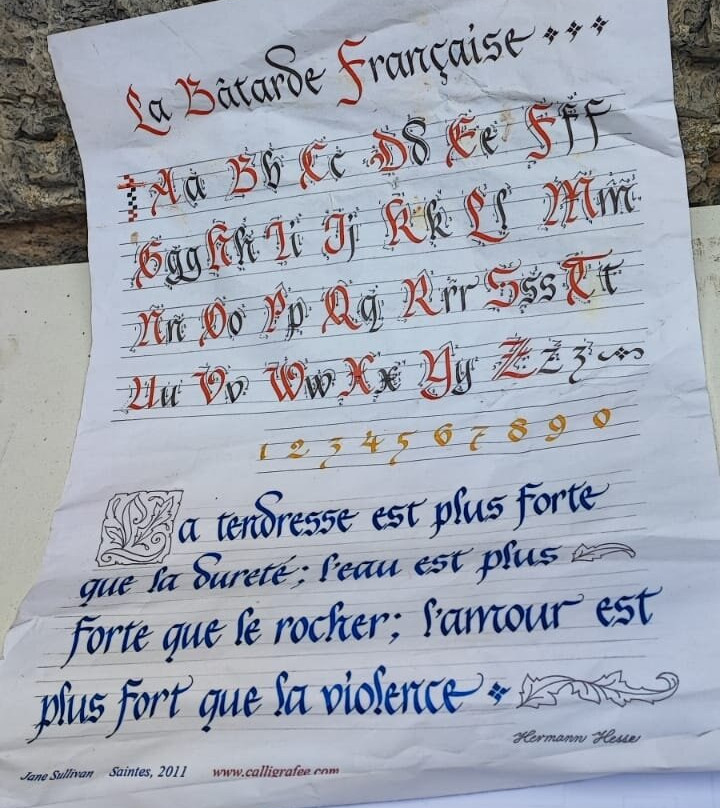 La Bâtarde Française
Aa Bb Cc Dd Ee Fff
Ggg Hh Ii Jj Kk Ll Mm
Nn Oo Pp Qq Rrr Sss Tt
Uu Vv Ww Xx Yy Zzz
1 2 3 4 5 6 7 8 9 0
La tendresse est plus forte
que la dureté; l'eau est plus
forte que le rocher; l'amour est
plus fort que la violence
Hermann Hesse
Jane Sullivan Saintes, 2011 www.calligrafee.com